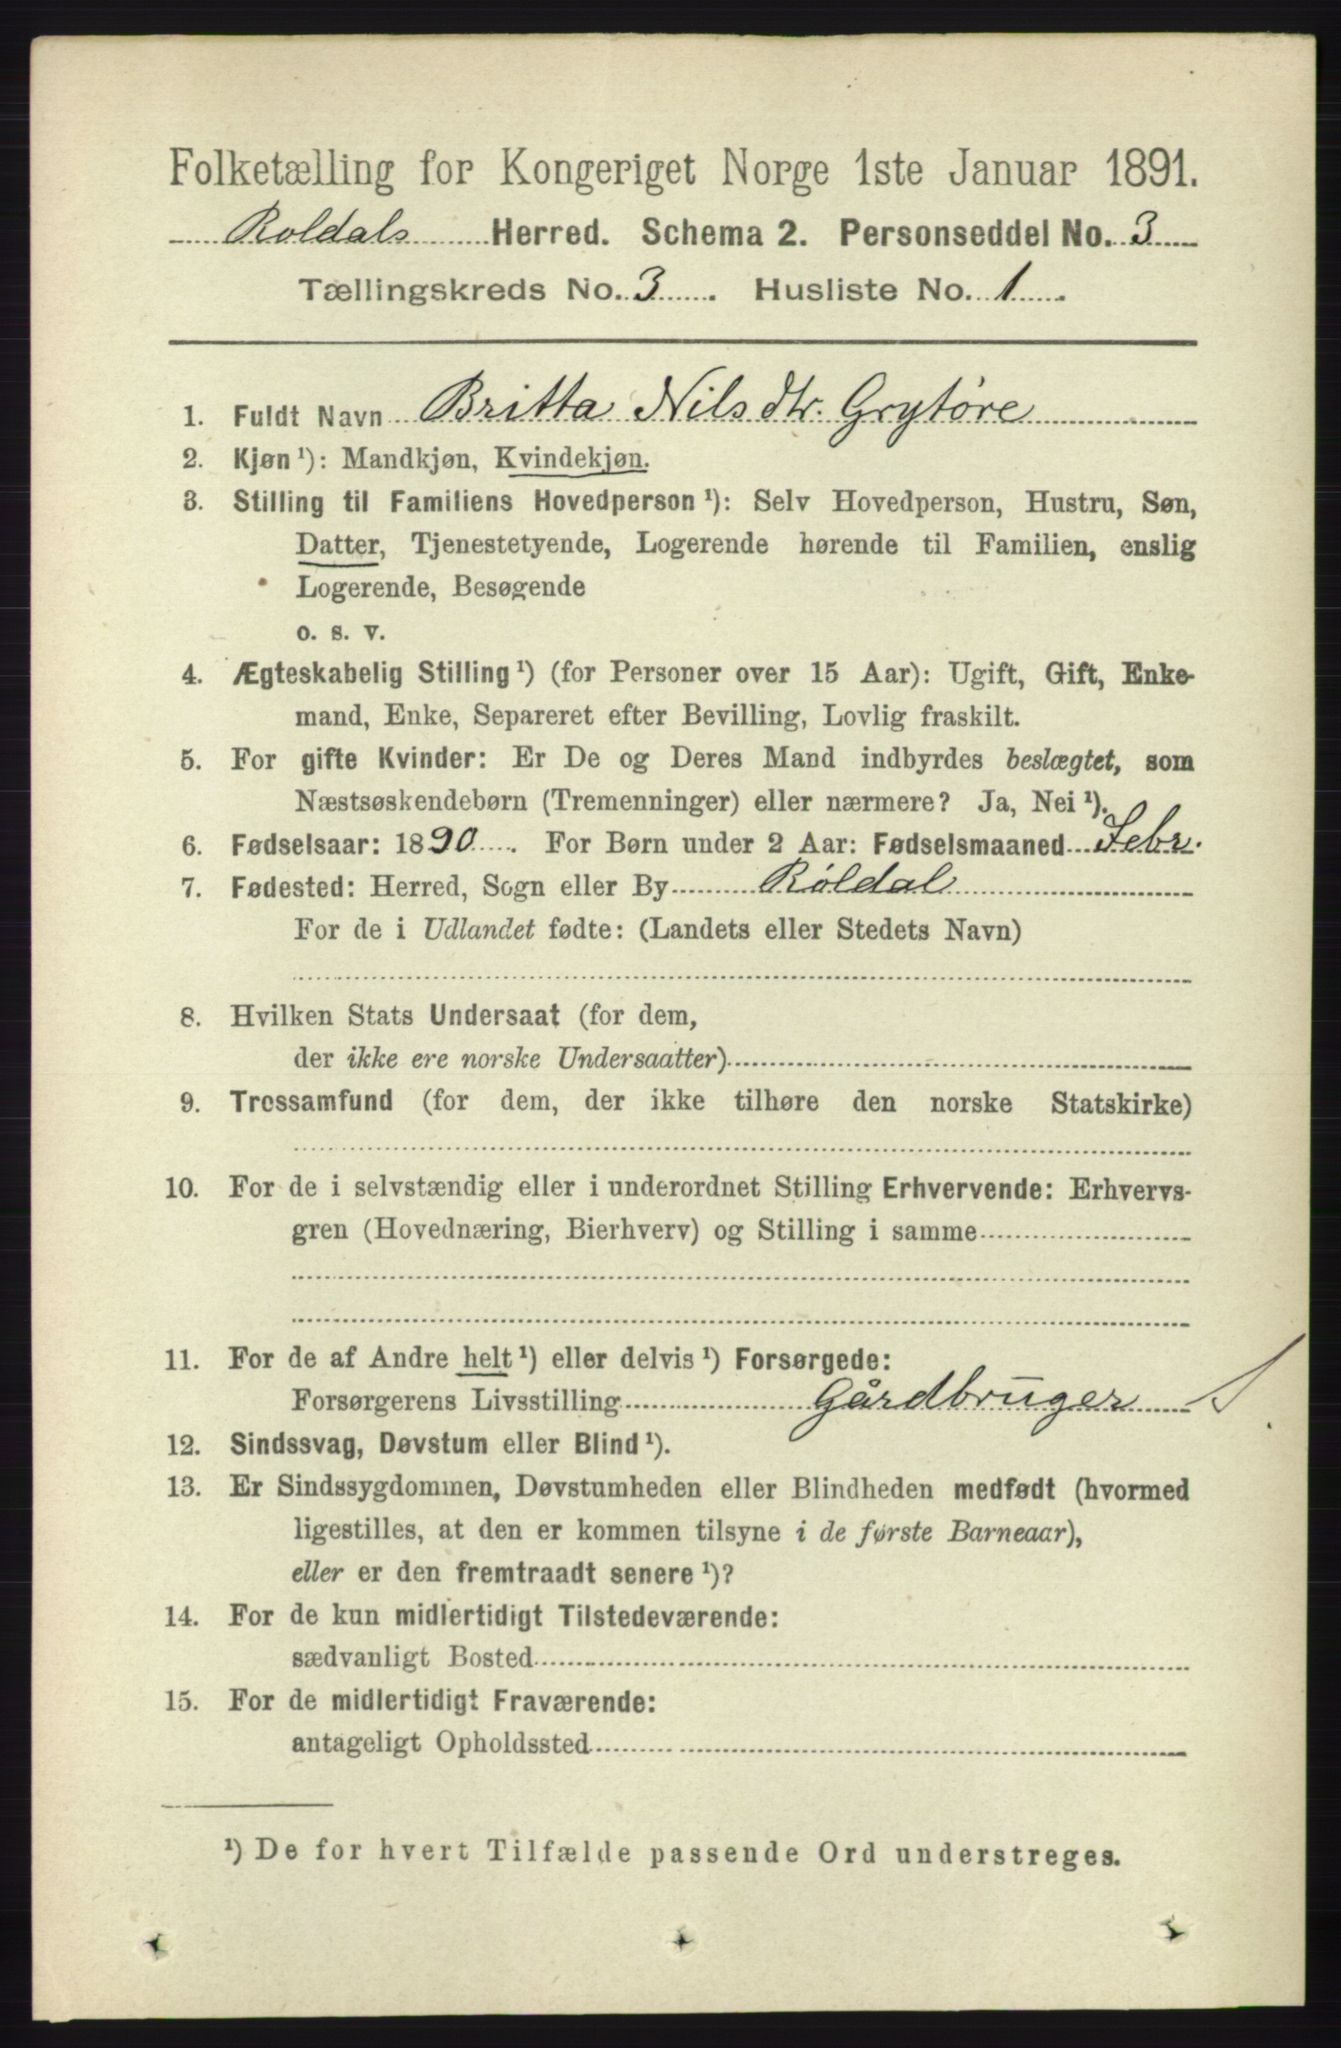 Folketælling for Kongeriget Norge 1ste Januar 1891.
Roldals Herred. Schema 2. Personseddel No. 3
Tællingskreds No. 3. Husliste No. 1.
1. Fuldt Navn Britta Nilsdtr. Grytøre
2. Kjøn ¹): Mandkjøn, Kvindekjøn.
3. Stilling til Familiens Hovedperson ¹): Selv Hovedperson, Hustru, Søn,
Datter, Tjenestetyende, Logerende hørende til Familien, enslig
Logerende, Besøgende
o. s. v.
4. Ægteskabelig Stilling ¹) (for Personer over 15 Aar): Ugift, Gift, Enke-
mand, Enke, Separeret efter Bevilling, Lovlig fraskilt.
5. For gifte Kvinder: Er De og Deres Mand indbyrdes beslægtet, som
Næstsøskendebørn (Tremenninger) eller nærmere? Ja, Nei ¹).
6. Fødselsaar: 1890. For Børn under 2 Aar: Fødselsmaaned Febr.
7. Fødested: Herred, Sogn eller By Röldal
For de i Udlandet fødte: (Landets eller Stedets Navn)
8. Hvilken Stats Undersaat (for dem,
der ikke ere norske Undersaatter)
9. Trossamfund (for dem, der ikke tilhøre den norske Statskirke)
10. For de i selvstændig eller i underordnet Stilling Erhvervende: Erhvervs-
gren (Hovednæring, Bierhverv) og Stilling i samme
11. For de af Andre helt ¹) eller delvis ¹) Forsørgede:
Forsørgerens Livsstilling Gårdbruger
12. Sindssvag, Døvstum eller Blind ¹).
13. Er Sindssygdommen, Døvstumheden eller Blindheden medfødt (hvormed
ligestilles, at den er kommen tilsyne i de første Barneaar),
eller er den fremtraadt senere ¹)?
14. For de kun midlertidigt Tilstedeværende:
sædvanligt Bosted
15. For de midlertidigt Fraværende:
antageligt Opholdssted
¹) De for hvert Tilfælde passende Ord understreges.